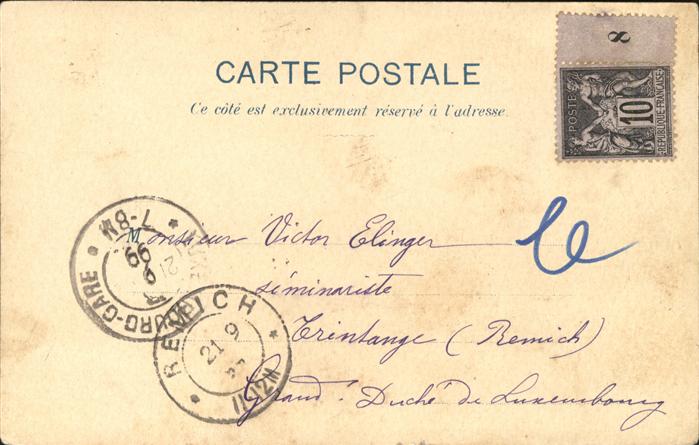 8
CARTE POSTALE
Ce côté est exclusivement réservé à l'adresse.
POSTES
10
REPUBLIQUE FRANÇAISE
7-8M
99
URG-GARE
Monsieur Victor Elinger
séminariste
Trintange (Remich)
Grand-Duché de Luxembourg
REMICH
21 9
11-12M